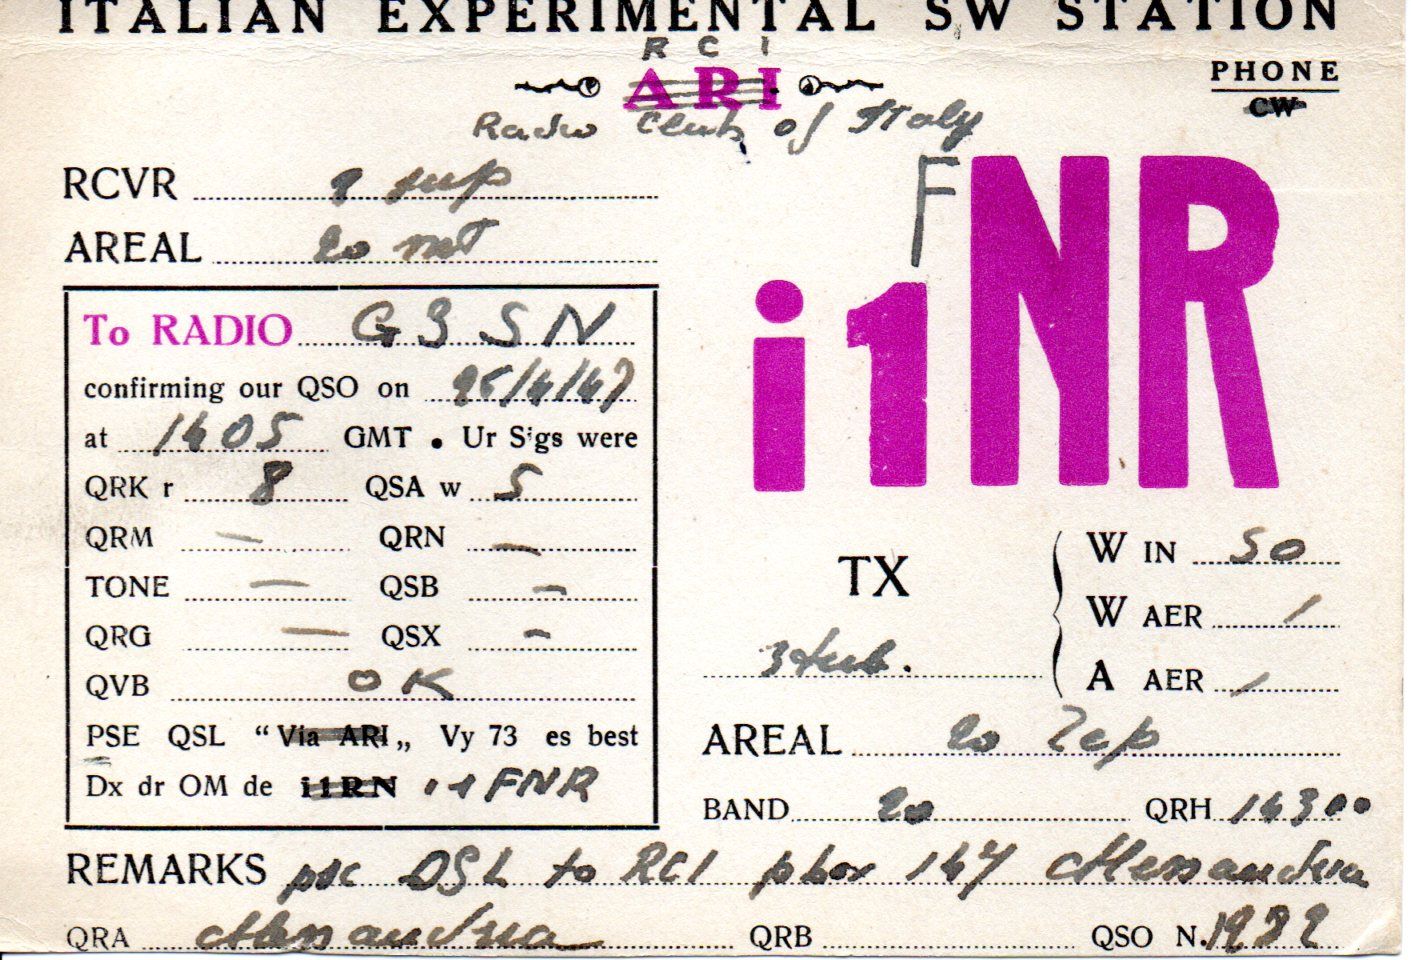 ITALIAN EXPERIMENTAL SW STATION
RCI
ARI
Radio Club of Italy
PHONE
CW
RCVR 9 sup
AREAL 20 mt
To RADIO G3SN
confirming our QSO on 25/4/47
at 1405 GMT . Ur Sigs were
QRK r 8 QSA w 5
QRM — QRN —
TONE — QSB —
QRG — QSX —
QVB OK
PSE QSL “Via ARI„ Vy 73 es best
Dx dr OM de i1RN i1FNR
i1FNR
TX 3 tub.
W IN 50
W AER /
A AER /
AREAL 20 Zep
BAND 20 QRH 14300
REMARKS pse QSL to RCI pbox 147 Alessandria
QRA Alessandria QRB QSO N.